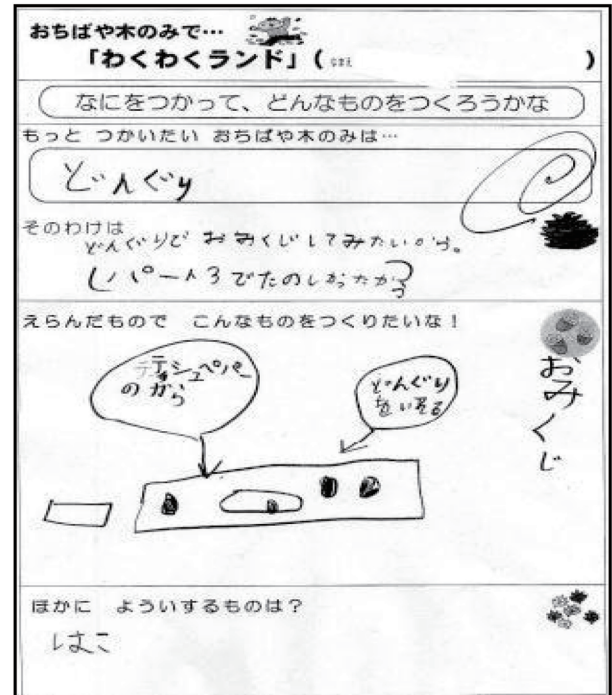 おちばや木のみで…
「わくわくランド」( なまえ )
なにをつかって、どんなものをつくろうかな
もっと つかいたい おちばや木のみは…
どんぐり
そのわけは
どんぐりで おみくじしてみたいから。
でたのしかったから
えらんだもので こんなものをつくりたいな!
おみくじ
ティシュペパー
のがら
どんぐり
を
ほかに よういするものは?
はこ